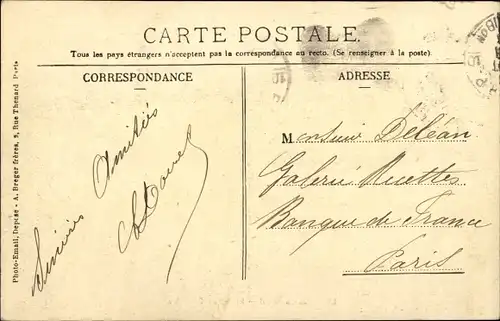 CARTE POSTALE.
Tous les pays étrangers n'acceptent pas la correspondance au recto. (Se renseigner à la poste).
CORRESPONDANCE
Sincères Amitiés
ADRESSE
Monsieur Deléan
Galerie Recettes
Banque de France
Paris
Photo-Email, Déposé - A. Breger frères, 9, Rue Thenard Paris